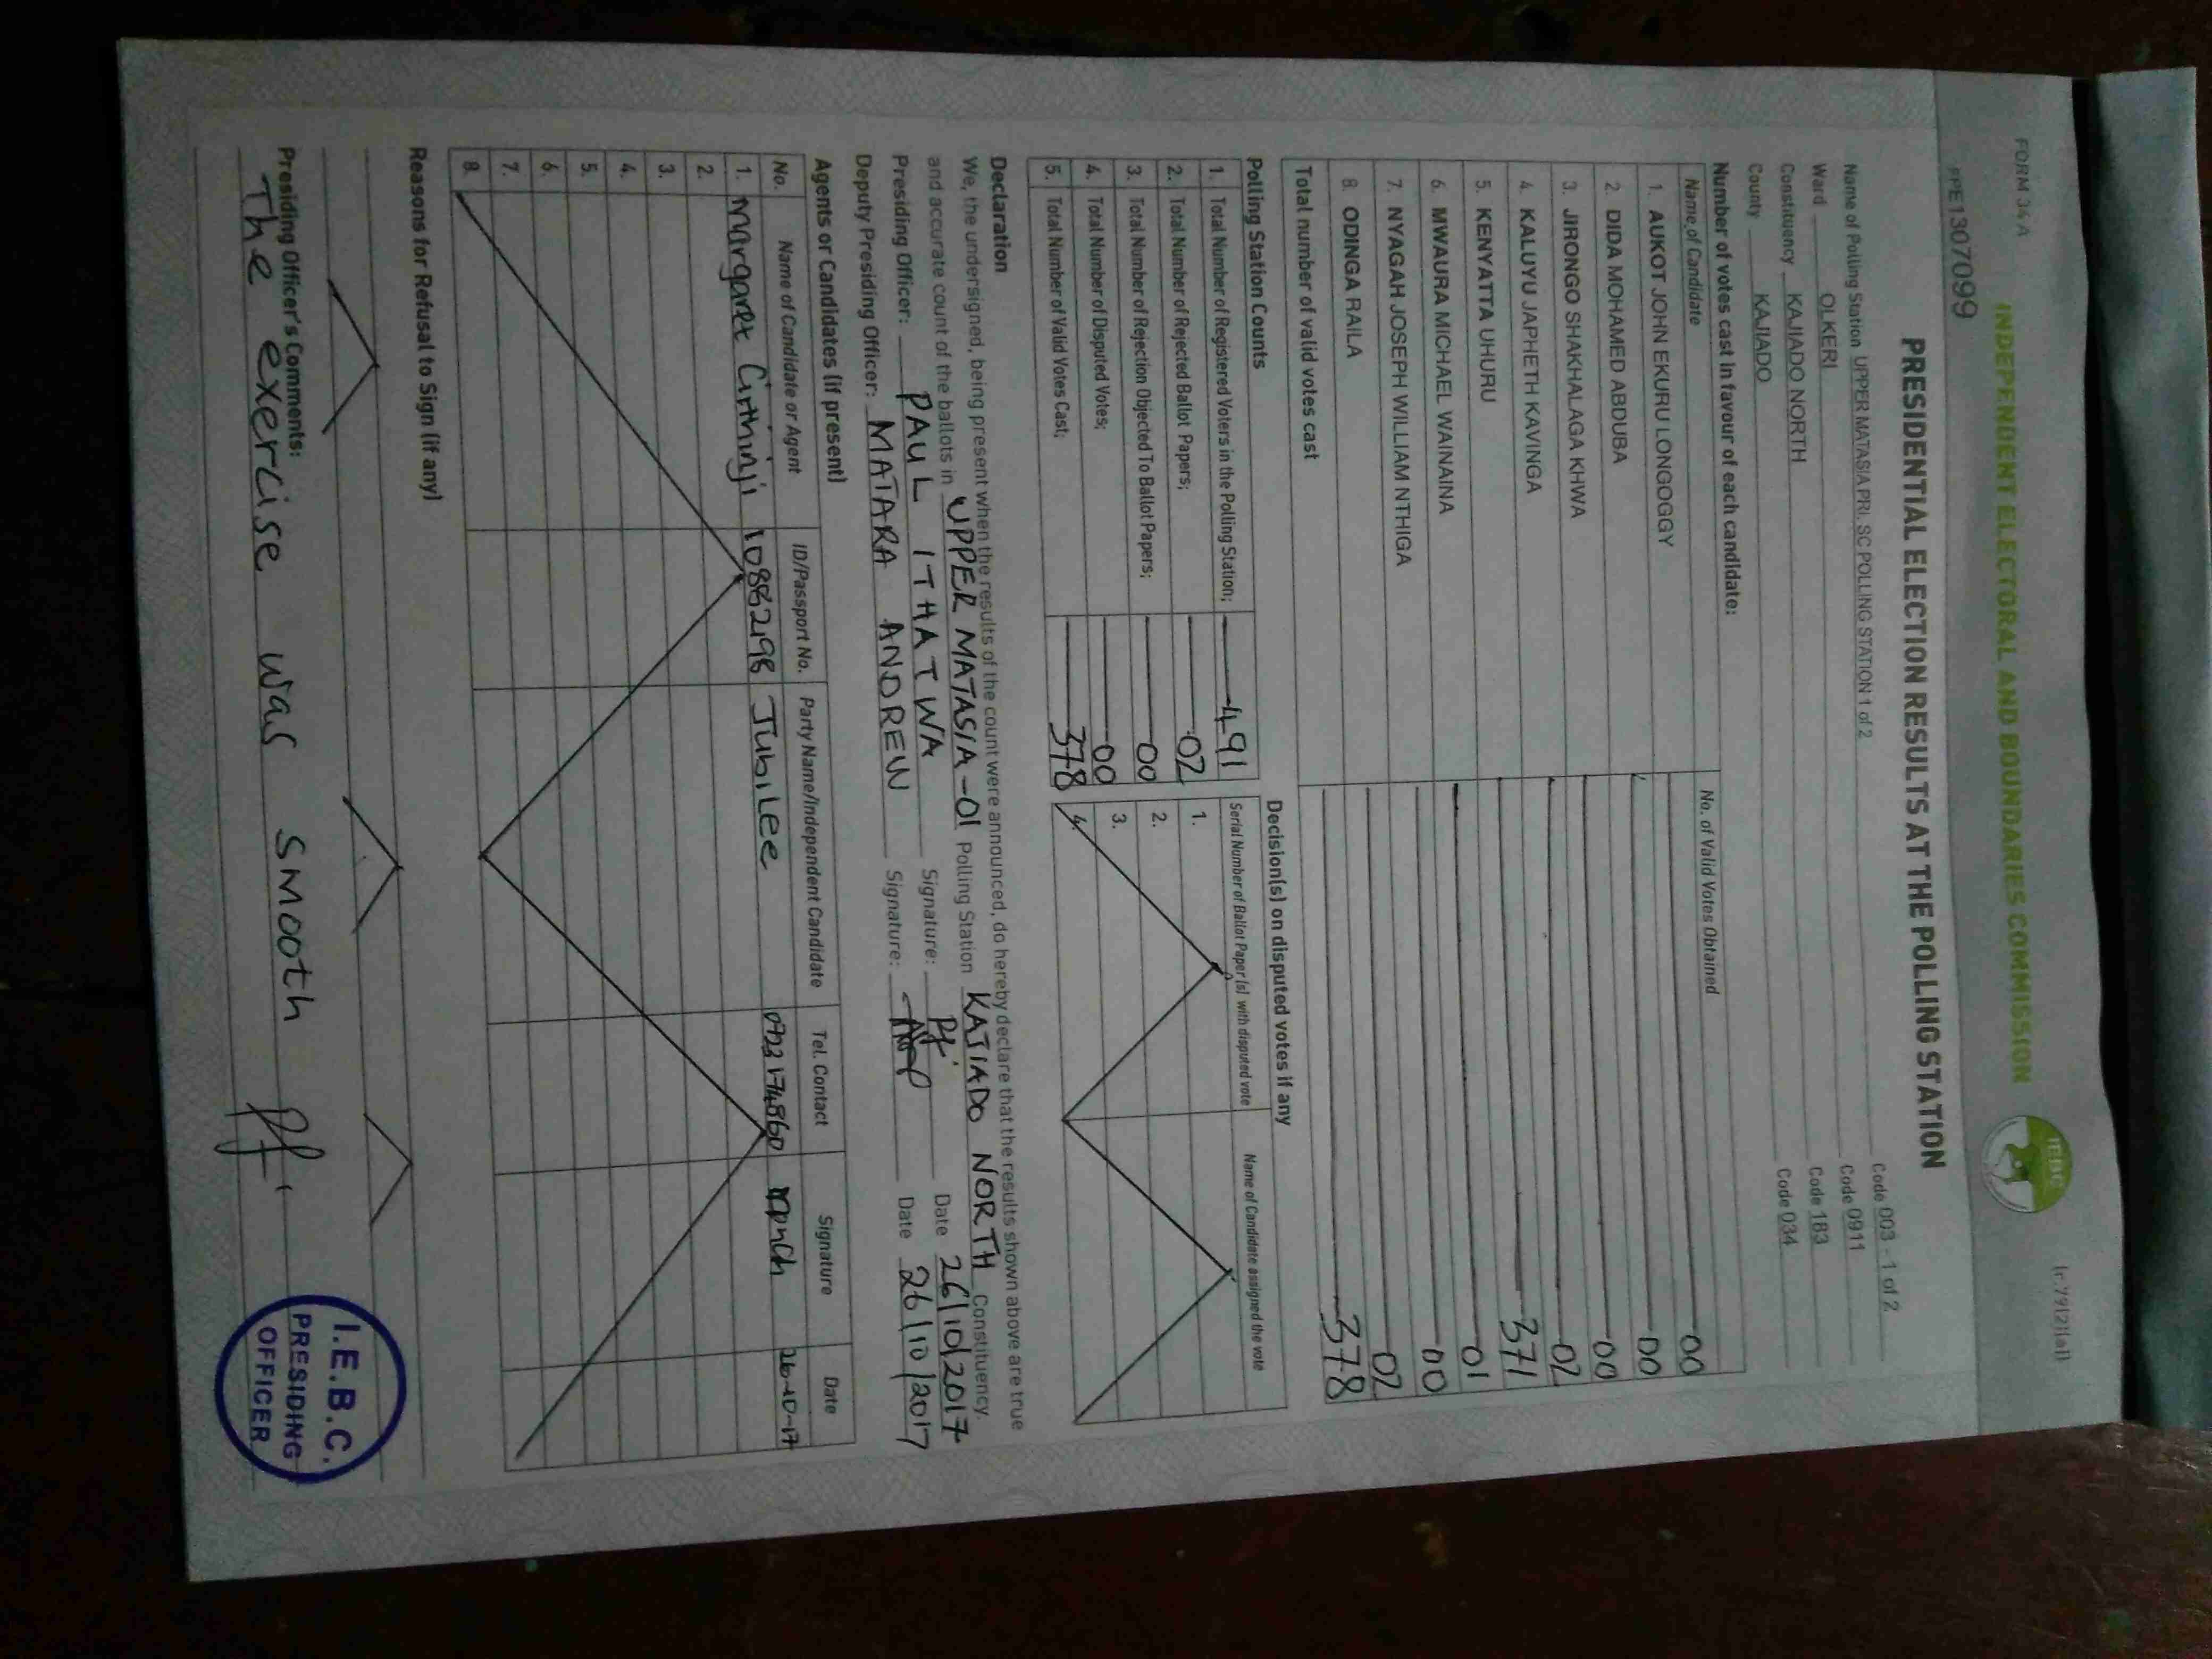 FORM 34A
(r.79(2)(a))
INDEPENDENT ELECTORAL AND BOUNDARIES COMMISSION
IEBC
PPE1307099
PRESIDENTIAL ELECTION RESULTS AT THE POLLING STATION
Name of Polling Station UPPER MATASIA PRI. SC POLLING STATION 1 of 2 Code 003 - 1 of 2
Ward OLKERI Code 0911
Constituency KAJIADO NORTH Code 183
County KAJIADO Code 034
Number of votes cast in favour of each candidate:
Name of Candidate No. of Valid Votes Obtained
1. AUKOT JOHN EKURU LONGOGGY 00
2. DIDA MOHAMED ABDUBA 00
3. JIRONGO SHAKHALAGA KHWA 00
4. KALUYU JAPHETH KAVINGA 02
5. KENYATTA UHURU 371
6. MWAURA MICHAEL WAINAINA 01
7. NYAGAH JOSEPH WILLIAM NTHIGA 00
8. ODINGA RAILA 02
Total number of valid votes cast 378
Polling Station Counts
1. Total Number of Registered Voters in the Polling Station; 491
2. Total Number of Rejected Ballot Papers; 02
3. Total Number of Rejection Objected To Ballot Papers; 00
4. Total Number of Disputed Votes; 00
5. Total Number of Valid Votes Cast; 378
Decision(s) on disputed votes if any
Serial Number of Ballot Paper(s) with disputed vote Name of Candidate assigned the vote
1.
2.
3.
4.
Declaration
We, the undersigned, being present when the results of the count were announced, do hereby declare that the results shown above are true
and accurate count of the ballots in UPPER MATASIA-01 Polling Station KAJIADO NORTH Constituency.
Presiding Officer: PAUL ITHATWA Signature: Date 26/10/2017
Deputy Presiding Officer: MATARA ANDREW Signature: Date 26/10/2017
Agents or Candidates (if present)
No. Name of Candidate or Agent ID/Passport No. Party Name/Independent Candidate Tel. Contact Signature Date
1. Margaret Githinji 10882198 JubiLee 0723174860 26-10-17
2.
3.
4.
5.
6.
7.
8.
Reasons for Refusal to Sign (if any)
Presiding Officer's Comments:
The exercise was smooth
I.E.B.C.
PRESIDING
OFFICER